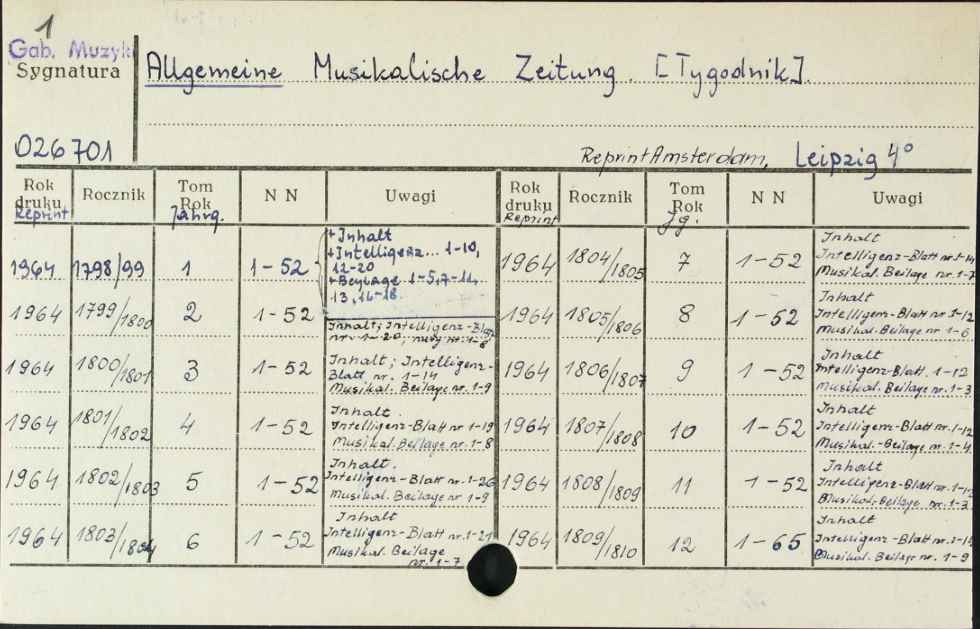 1
Gab. Muzyki
Sygnatura
Allgemeine Musikalische Zeitung. [Tygodnik].
026701
Reprint Amsterdam, Leipzig 4°
Rok druku Reprint | Rocznik | Tom Rok Jahrg. | N N | Uwagi | Rok druku Reprint | Rocznik | Tom Rok Jg. | N N | Uwagi
1964 1798/99 1 1-52
+Inhalt
+Intelligenz... 1-10,
12-20
+Beylage 1-5,7-11,
13, 14-18
1964 1799/1800 2 1-52
Inhalt; Intelligenz-Blatt
nr. 1-20;
1964 1800/1801 3 1-52
Inhalt; Intelligenz-
Blatt nr. 1-14
Musikal. Beilage nr. 1-9
1964 1801/1802 4 1-52
Inhalt.
Intelligenz-Blatt nr. 1-19
Musikal. Beilage nr. 1-8
1964 1802/1803 5 1-52
Inhalt.
Intelligenz-Blatt nr. 1-26
Musikal. Beilage nr. 1-9
1964 1803/1804 6 1-52
Inhalt
Intelligenz-Blatt nr. 1-21
Musikal. Beilage
nr. 1-7
1964 1804/1805 7 1-52
Inhalt
Intelligenz-Blatt nr. 1-14
Musikal. Beilage nr. 1-7
1964 1805/1806 8 1-52
Inhalt
Intelligenz-Blatt nr. 1-12
Musikal. Beilage nr. 1-6
1964 1806/1807 9 1-52
Inhalt
Intelligenz-Blatt. 1-12
Musikal. Beilage nr. 1-3
1964 1807/1808 10 1-52
Inhalt
Intelligenz-Blatt nr. 1-12
Musikal.-Beilage nr. 1-4
1964 1808/1809 11 1-52
Inhalt
Intelligenz-Blatt nr.
Musikal.-Beilage nr. 1-3
1964 1809/1810 12 1-65
Inhalt
Intelligenz-Blatt nr.
Musikal. Beilage nr. 1-9